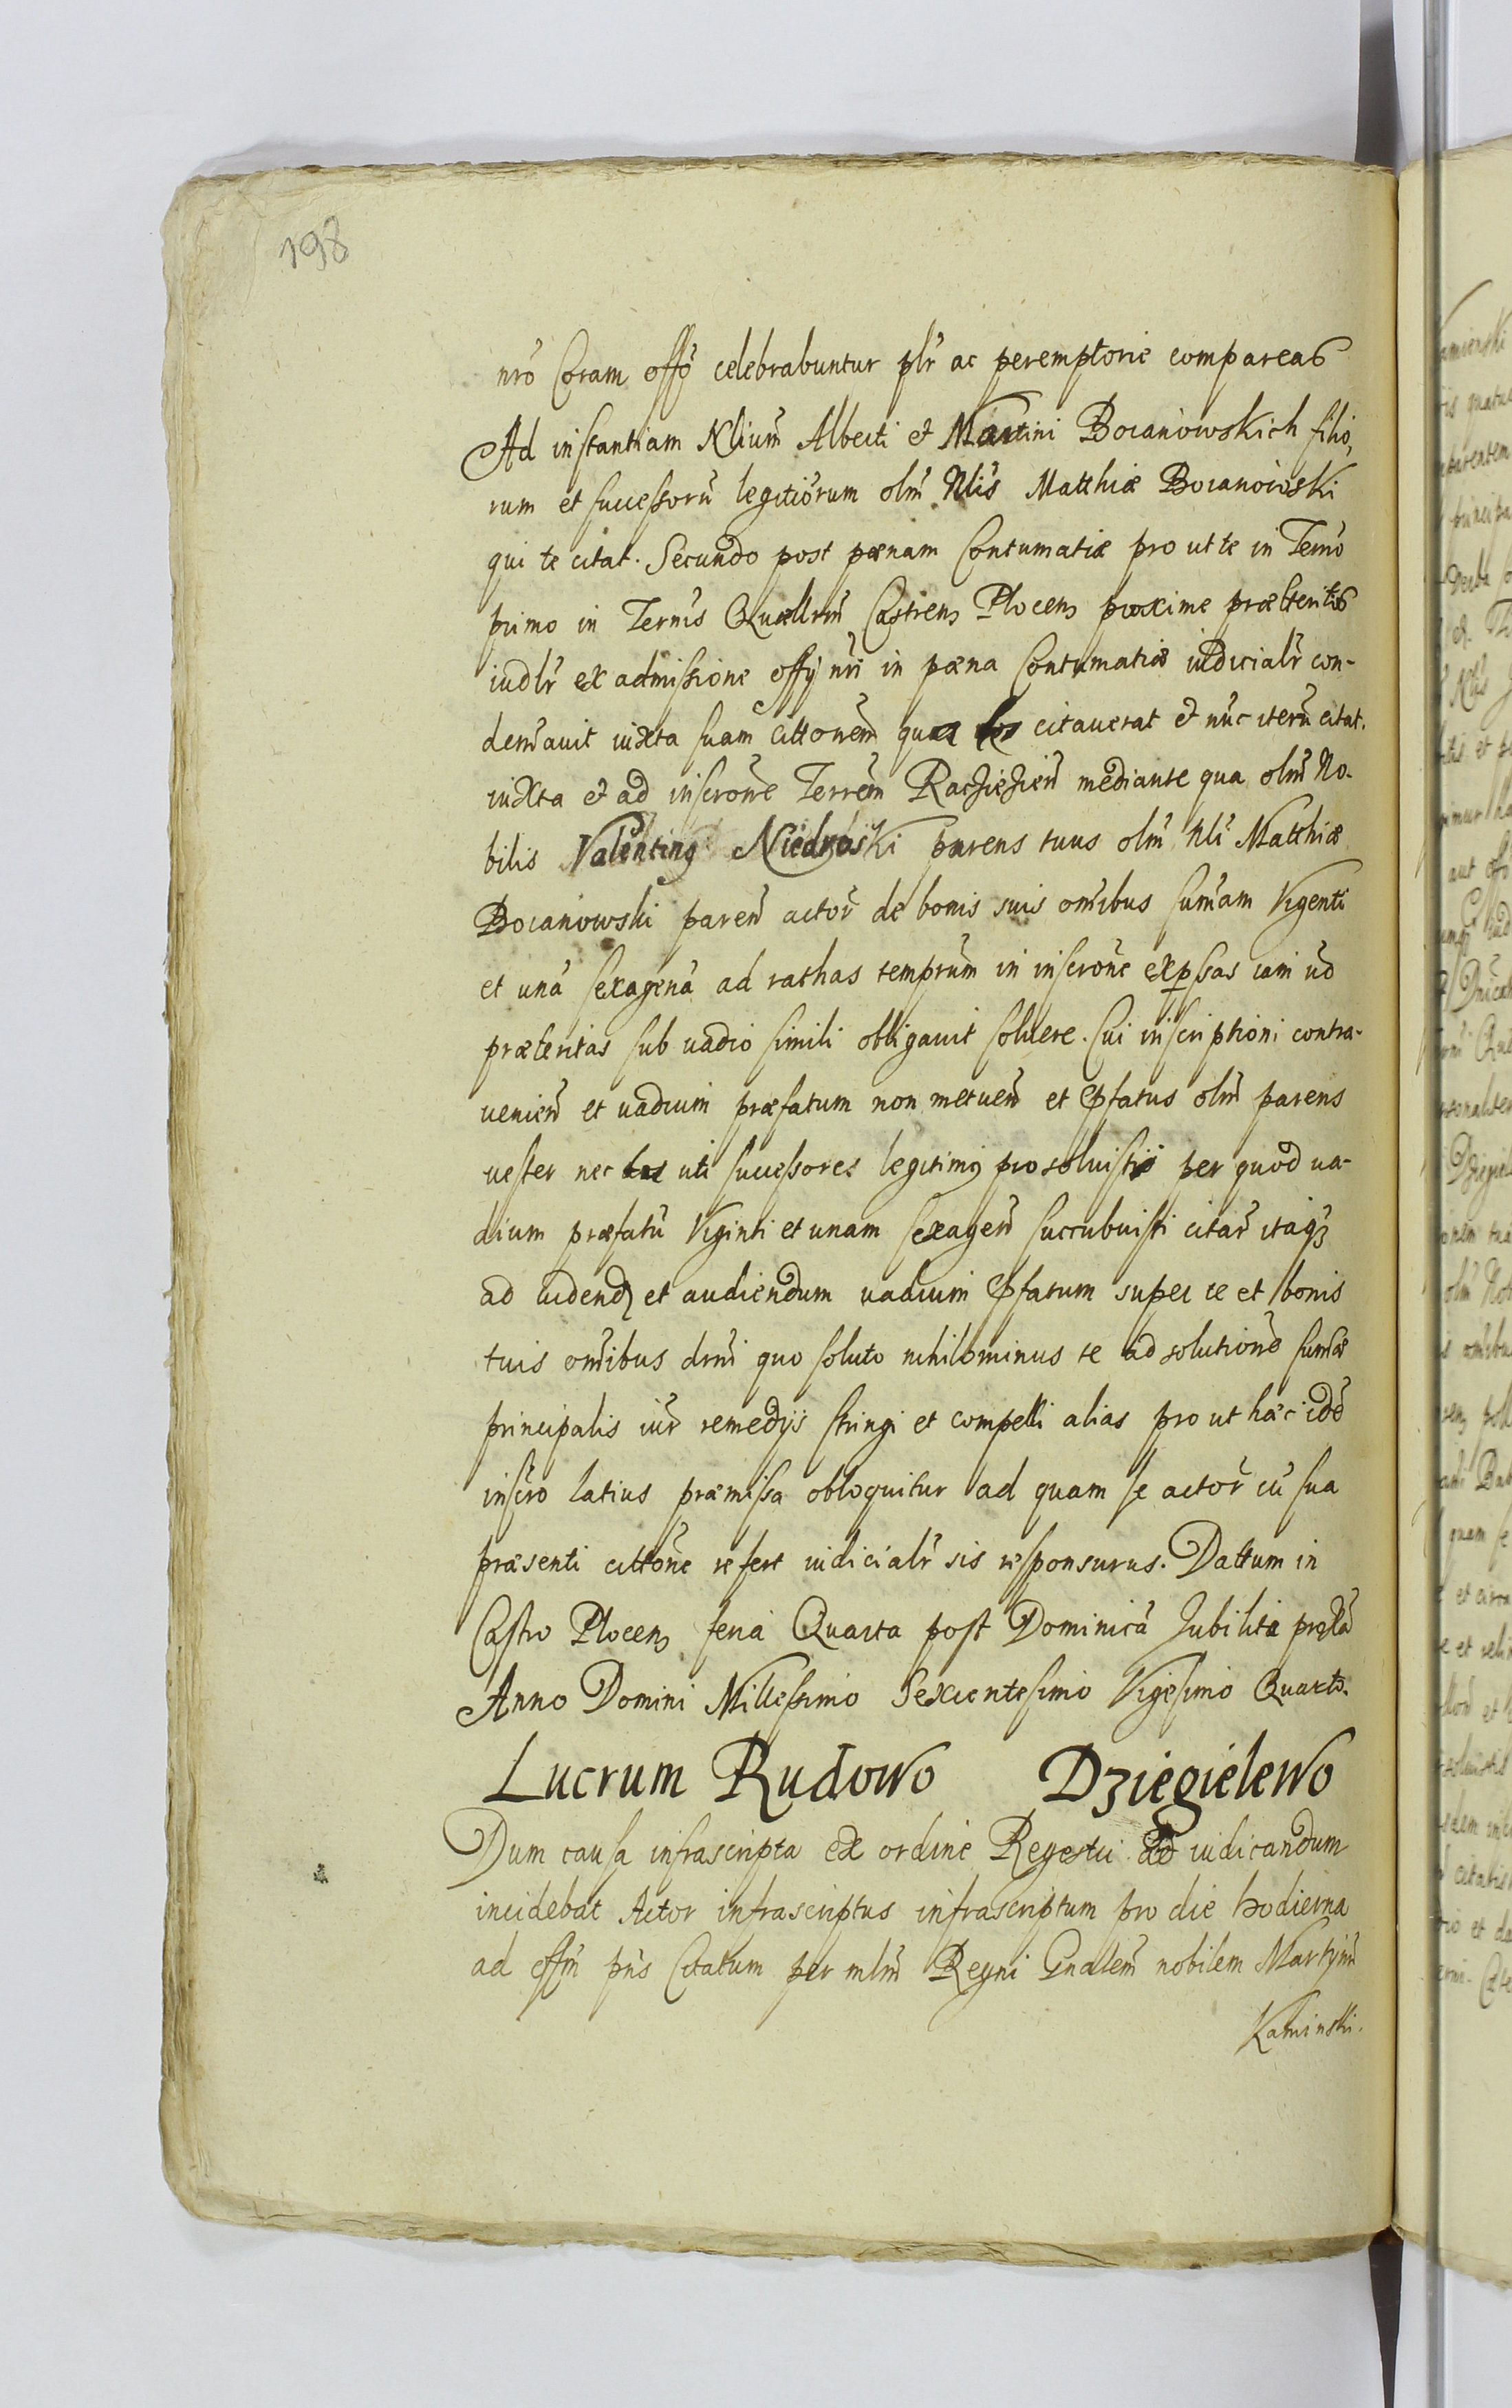 198
nro Coram offo celebrabuntur plr ac peremptorie compareas
Ad instantiam Nlium Alberti et Martini Bocanowskich filio,
rum et successoru legitiorum olm Nlis Matthiæ Bocanowski
qui te citat. Secundo post pænam Contumatiæ pro ut te in Termo
primo in Ternis Quællrm Castrens Plocens proxime præteritis
iudlr ex admissione offy nri in pæna Contumatiæ iudicialr con-
demauit iuxta suam cittonem qua citauerat et nuc iteru citat.
iuxta et ad inscrone Terrem Racziezien mediante qua olm No-
bilis Valenting Niedroski parens tuus olm Nli Matthiæ
Bocanowski paren actor de bonis suis omibus sumam Vigenti
et una sexagena ad rathas temprum in inscrone expssas iam ud
præteritas sub uadio simili obligauit soluere. Cui inscriptioni contra-
uenien et uadium præfatum non metuen et pfatus olm parens
uester nec uti successores legitimy pro soluistis per quod ua-
dium præfatu Viginti et unam sexagen succubuisti citar itaqz
ad uidend et audiendum uadium pfatum super te et bonis
tuis omibus drni quo soluto nihilominus te ad solutione sumæ
principalis iur remedijs stringi et compelli alias pro ut hæc ide
inscro latius præmissa obloquitur ad quam se actor cu sua
præsenti cittone refert iudicialr sis responsurus. Dattum in
Castro Plocens feria Quarta post Dominica Jubilate
Anno Domini Millessimo Sexcentesimo Vigesimo Quarto.
Lucrum Rudowo Dziegielewo
Dum causa infrascripta ex ordine Regestri ad iudicandum
incidebat Actor infrascriptus infrascriptum pro die hodierna
ad offm pns Citatum per mlm Regni Gnalem nobilem Martinu
Kaminski.